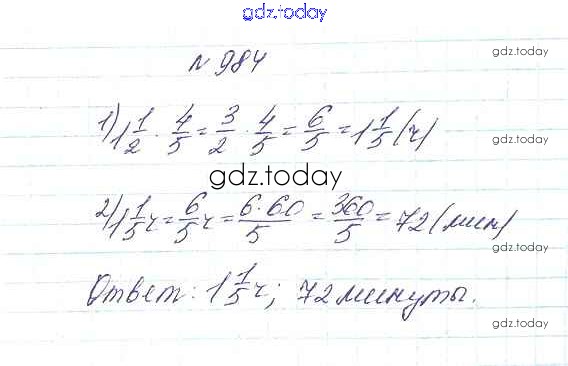 gdz.today
№984
gdz.today
1) 1 1/2 · 4/5 = 3/2 · 4/5 = 6/5 = 1 1/5 (ч)
gdz.today
gdz.today
2) 1 1/5 ч = 6/5 ч = 6·60/5 = 360/5 = 72 (мин)
gdz.today
Ответ: 1 1/5 ч; 72 минуты.
gdz.today